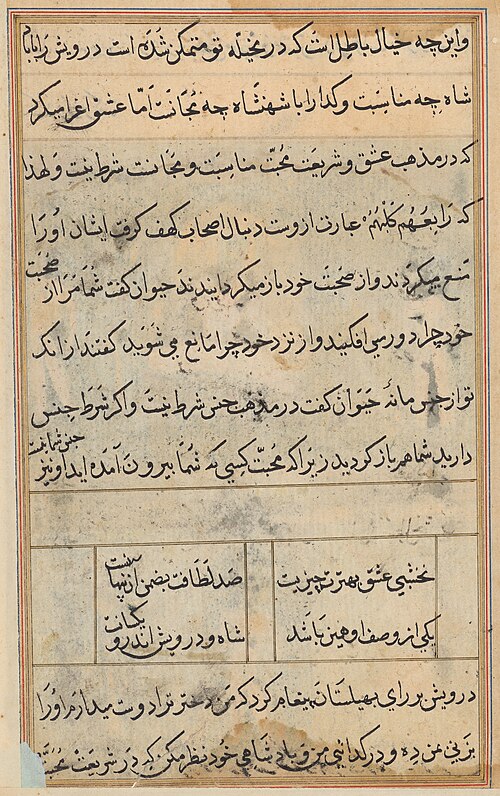 واین چه خیال باطل است که در مخیله تو متمکن شده است درویش را با
شاه چه مناسبت وگدا را با شهنشاه چه مجانست اما عشق اغرا میکرد
که در مذهب عشق و شریعت محبت مناسبت و مجانست شرط نیست و لهذا
که رابعهم کلبهم عبارت ازوست دنبال اصحاب کهف گرفت ایشان او را
منع میکردند و از صحبت خود باز میگردانیدند حیوان گفت شما مرا از صحبت
خود چرا دور می افکنید و از نزد خود چرا مانع می شوید گفتند از انک
تو از جنس ما نه حیوان گفت در مذهب جنس شرط نیست واگر شرط جنس
دارید شما هم باز گردید زیرا که محبت کسی که شما بیرون آمده اید او نیز جنس شما نیست
نخشبی عشق بهترین چیزیست
صد لطافت بضمن از پنهانست
یکی از وصف او همین باشد
شاه و درویش اندرو یکسانست
درویش بر رای بهیلستان پیغام کرد که من دختر ترا دوست میدارم او را
بزنی من ده و در گدائی من و پادشاهی خود نظر مکن که در شریعت محبت